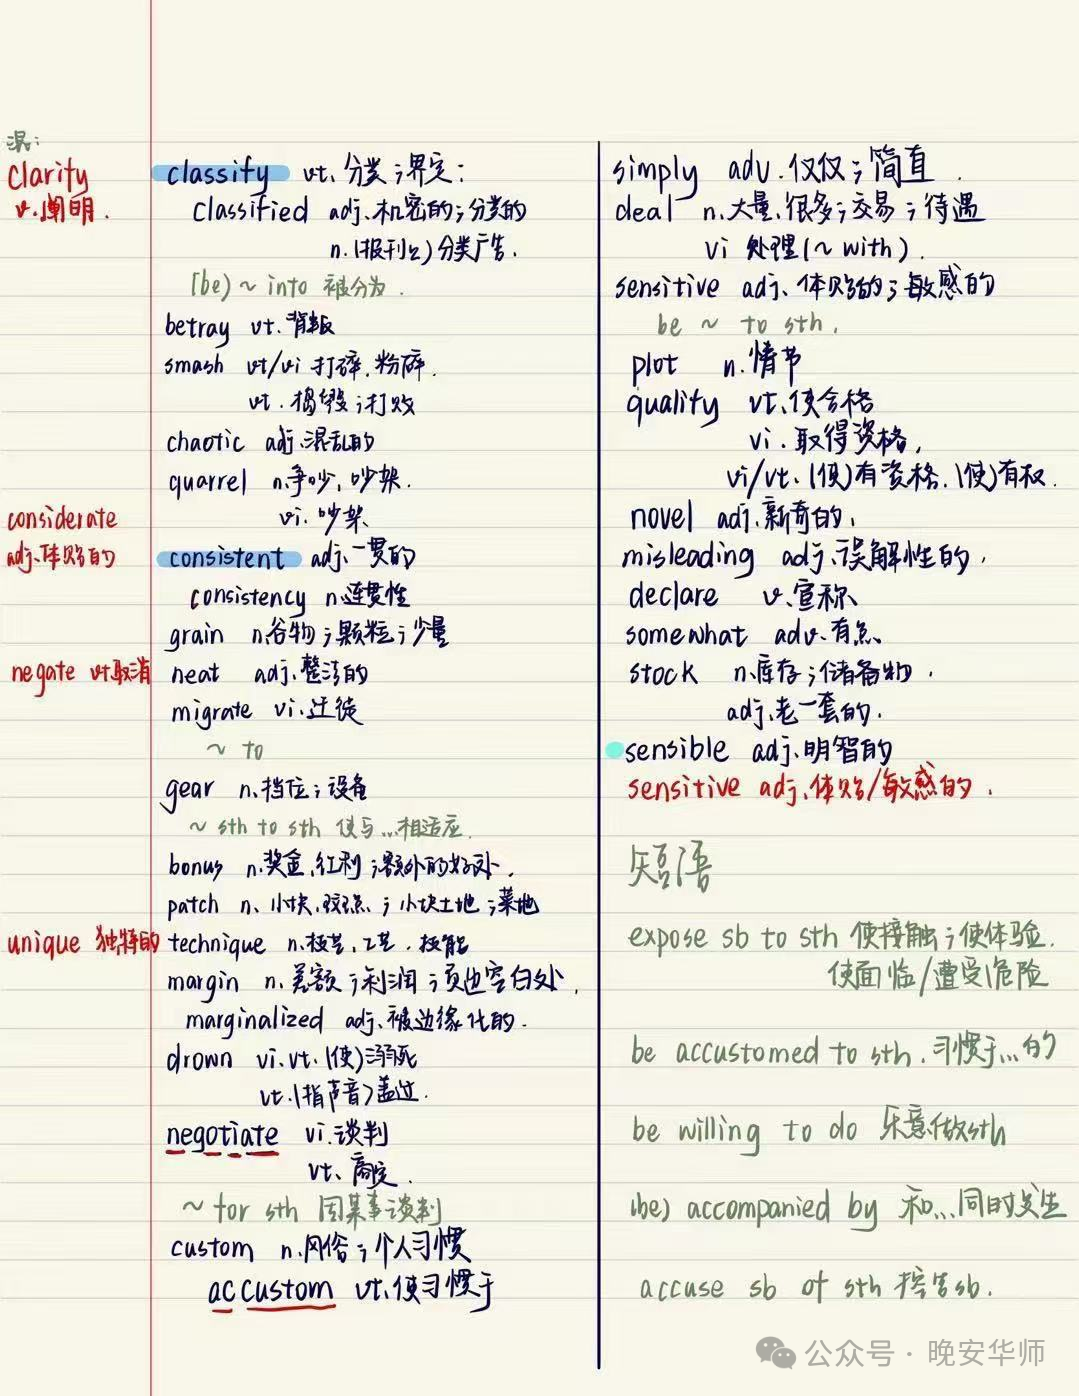 混:
clarity
v.阐明.
classify vt.分类;界定;
classified adj.机密的;分类的
n.(报刊上)分类广告.
(be)~into 被分为.
betray vt.背叛
smash vt/vi 打碎.粉碎.
vt.捣毁;打败
chaotic adj.混乱的
quarrel n.争吵、吵架.
vi.吵架
considerate
adj.体贴的
consistent adj.一贯的
consistency n.连贯性
grain n.谷物;颗粒;少量
negate vt取消
neat adj.整洁的
migrate vi.迁徙
~ to
gear n.挡位;设备
~ sth to sth 使与...相适应.
bonus n.奖金,红利;额外的好处.
patch n.小块,斑点、;小块土地;菜地
unique 独特的
technique n.技艺,工艺.技能
margin n.差额;利润;页边空白处.
marginalized adj.被边缘化的.
drown vi.vt.(使)溺死
vt.(指声音)盖过.
negotiate vi.谈判
vt、商定.
~ for sth 因某事谈判
custom n.风俗;个人习惯
accustom vt.使习惯于
simply adv.仅仅;简直.
deal n.大量,很多;交易;待遇
vi 处理(~with).
sensitive adj.体贴的;敏感的
be ~ to sth.
plot n.情节
qualify vt.使合格
vi.取得资格,
vi/vt.(使)有资格.(使)有权.
novel adj.新奇的,
misleading adj.误解性的,
declare v.宣称
somewhat adv.有点
stock n.库存;储备物.
adj.老一套的.
sensible adj.明智的
sensitive adj.体贴/敏感的.
短语
expose sb to sth 使接触;使体验.
使面临/遭受危险
be accustomed to sth.习惯于...的
be willing to do 乐意做sth
(be) accompanied by 和...同时发生
accuse sb of sth 控告sb.
公众号·晚安华师